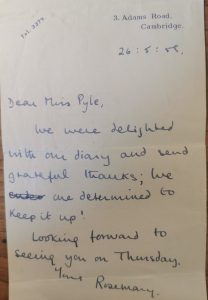 Tel. 3373.
3, Adams Road,
Cambridge.
26 : 5 : 58.
Dear Miss Pyle,
We were delighted
with our diary and send
grateful thanks; We
are determined to
keep it up!
Looking forward to
seeing you on Thursday.
Yours Rosemary.